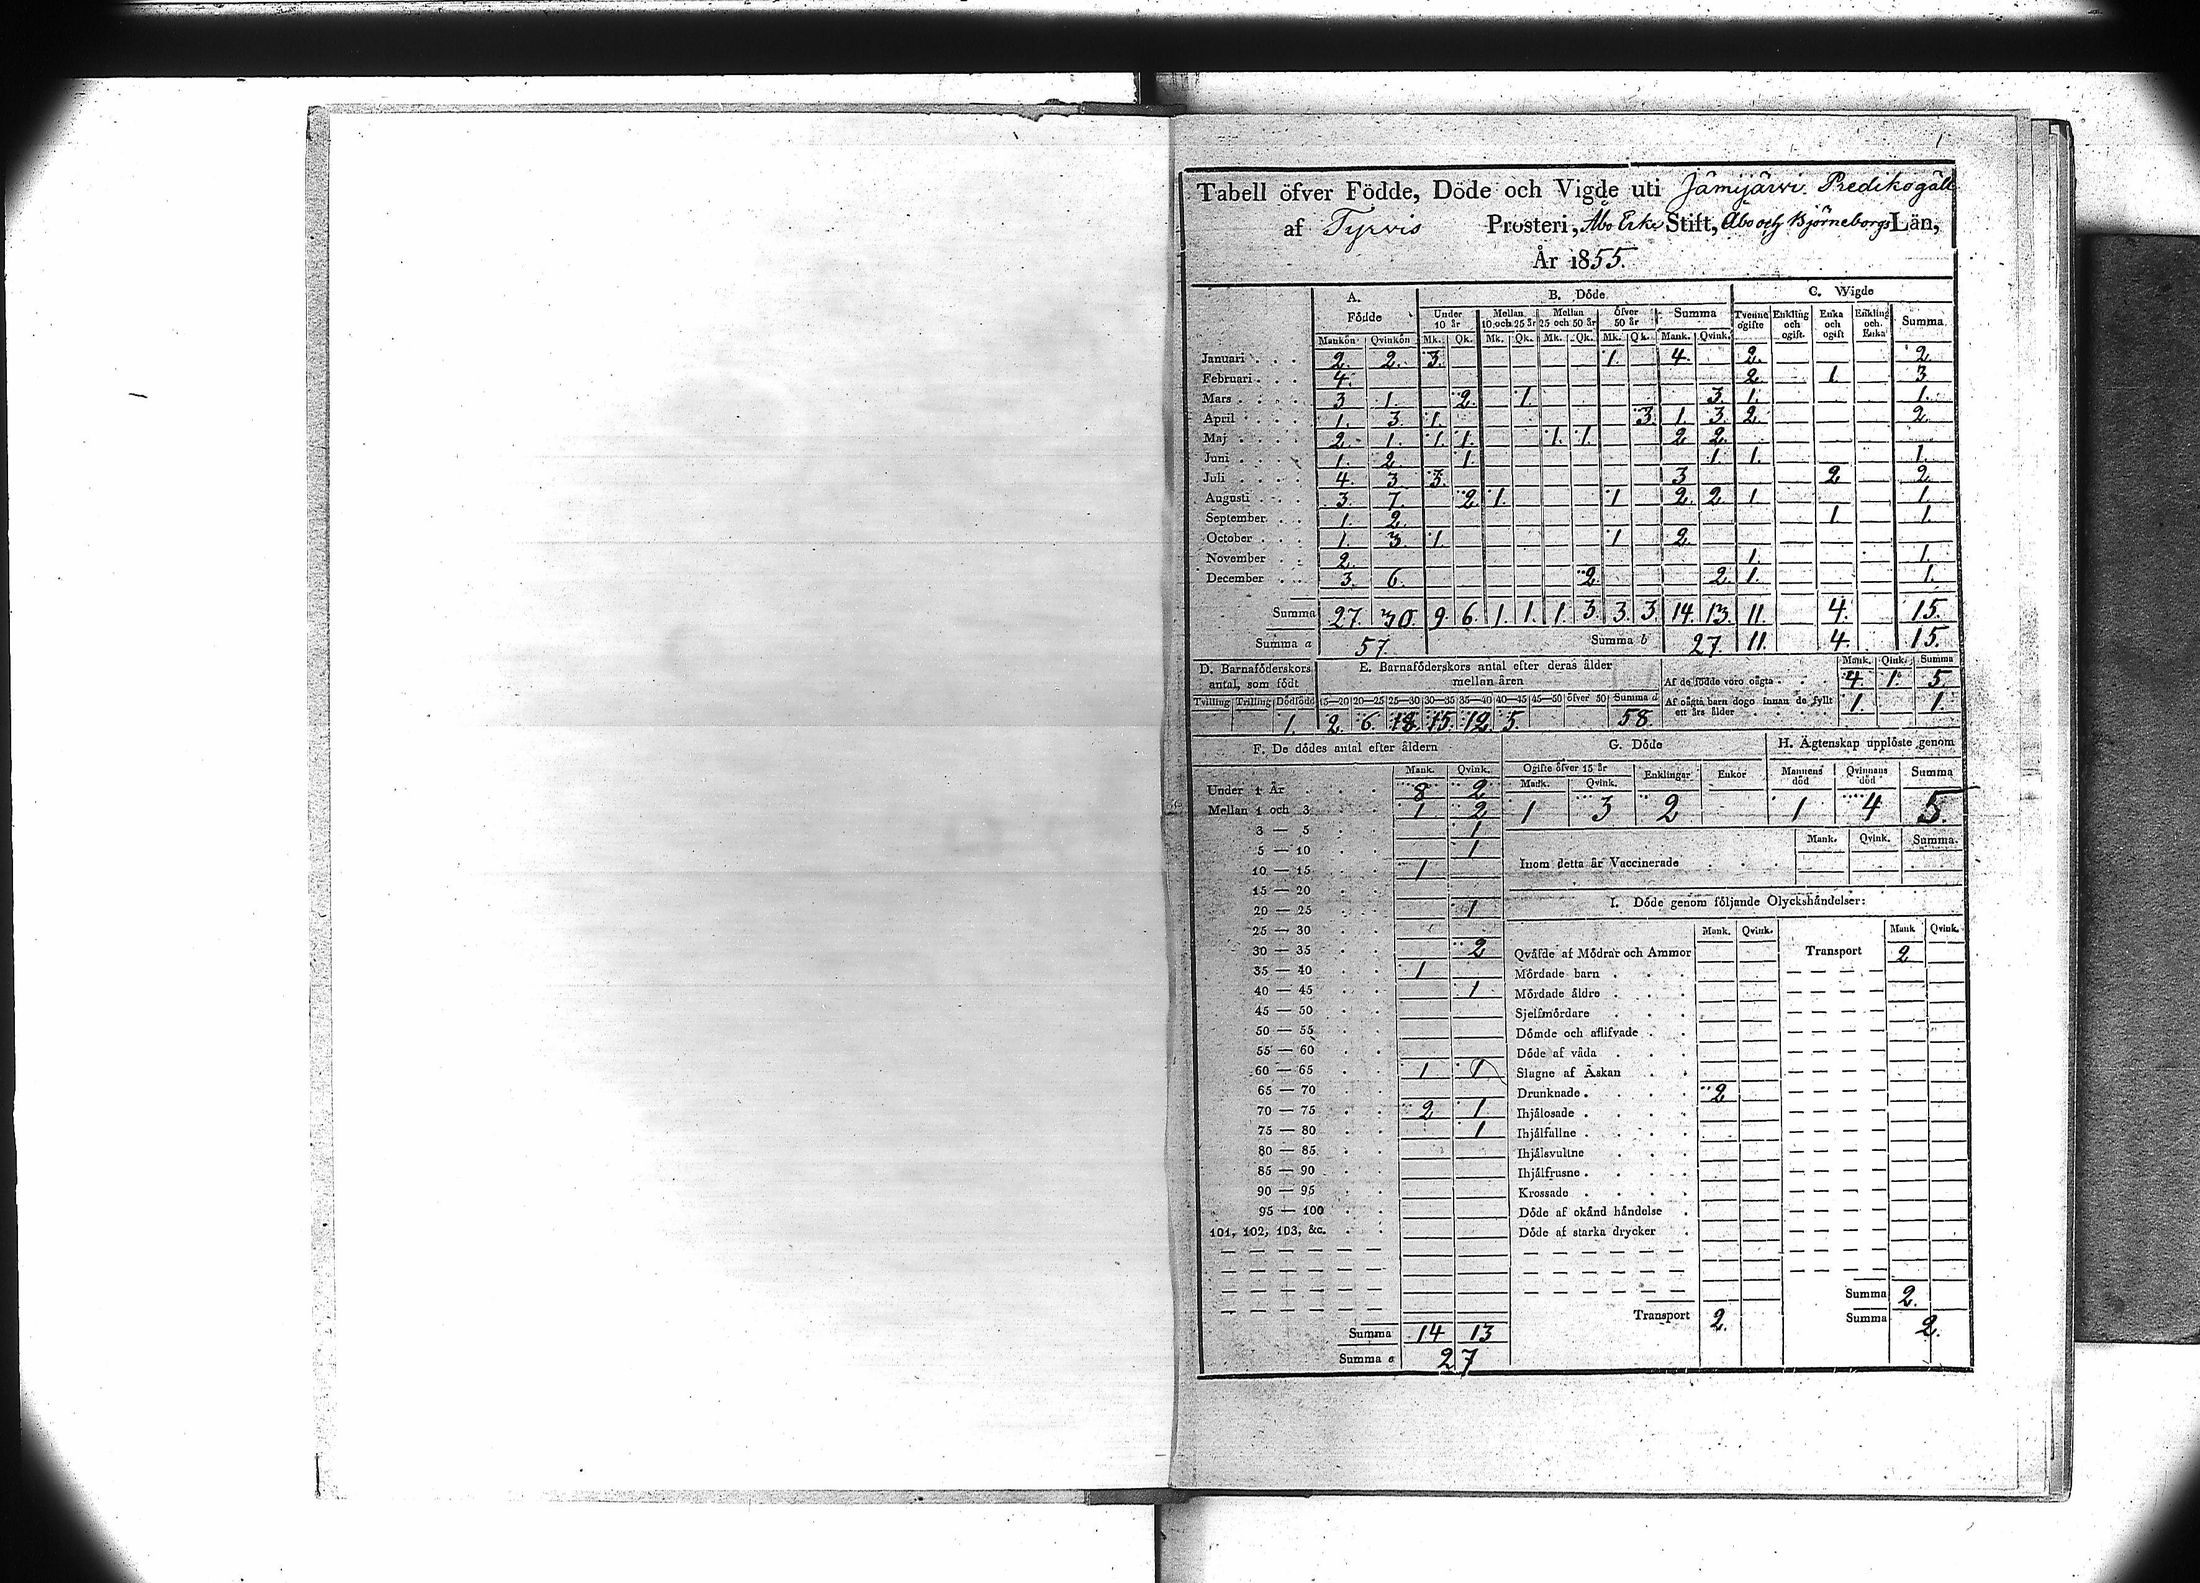 1
Tabell öfver Födde, Döde och Vigde uti Jämijärvi Predikogäll
af Tyrvis Prosteri, Åbo Erke Stift, Åbo och Björneborgs Län,
År 1855.
A. Födde B. Döde C. Wigde
Under 10 år Mellan 10 och 25 år Mellan 25 och 50 år öfver 50 år Summa Tvenne ogifte Enkling och ogift. Enka och ogift Enkling och Enka Summa
Mankön Qvinkön Mk. Qk. Mk. Qk. Mk. Qk. Mk. Qk. Mank. Qvink.
Januari . . . 2. 2. 3. 1. 4. 2. 2.
Februari . . . 4. 2. 1. 3.
Mars . . . . 3 1. 2. 1. 3. 1. 1.
April . . . 1. 3. 1. 3. 1. 3. 2. 2.
Maj . . . . 2. 1. 1. 1. 1. 1. 2. 2.
Juni . . . . 1. 2. 1. 1. 1. 1.
Juli . . . . 4. 3. 3. 3. 2. 2.
Augusti . . . 3. 7. 2. 1. 1 2. 2. 1 1.
September . . 1. 2. 1. 1.
October . . . 1. 3. 1. 1 2.
November . . 2. 1. 1.
December . . 3. 6. 2. 2. 1. 1.
Summa 27. 30. 9. 6. 1. 1. 1. 3. 3. 3. 14. 13. 11. 4. 15.
Summa a 57. Summa b 27. 11. 4. 15.
D. Barnaföderskors antal, som födt
Tvilling Trilling Dödfödd
1.
E. Barnaföderskors antal efter deras ålder mellan åren
15—20 20—25 25—30 30—35 35—40 40—45 45—50 öfver 50 Summa d
2. 6. 18. 15. 12. 5. 58.
Mank. Qink. Summa
Af de födde voro oägta . . . 4. 1. 5.
Af oägta barn dogo innan de fyllt ett års ålder . . . . 1. 1.
F. De dödes antal efter åldern
Mank. Qvink.
Under 1 År . . . 8 2
Mellan 1 och 3 . . 1 2
3 — 5 . . 1
5 — 10 . . 1
10 — 15 . . 1
15 — 20
20 — 25 . . 1
25 — 30
30 — 35 . . 2
35 — 40 . . 1
40 — 45 . . 1
45 — 50 . .
50 — 55 . .
55 — 60 . .
60 — 65 . . 1 1
65 — 70 . .
70 — 75 . . 2 1
75 — 80 . . 1
80 — 85 . .
85 — 90 . .
90 — 95 . .
95 — 100 . .
101, 102, 103, &c. . .
Summa 14 13
Summa e 27
G. Döde
Ogifte öfver 15 år Enklingar Enkor
Mank. Qvink.
1 3 2
H. Ägtenskap upplöste genom
Mannens död Qvinnans död Summa
1 4 5.
Mank. Qvink. Summa.
Inom detta år Vaccinerade . . .
I. Döde genom följande Olyckshändelser:
Mank. Qvink. Mank Qvink.
Qväfde af Mödrar och Ammor Transport 2
Mördade barn . . .
Mördade äldre . . .
Sjelfmördare . . .
Dömde och aflifvade . .
Döde af våda . . .
Slagne af Åskan . .
Drunknade . . . . 2
Ihjälosade . . . .
Ihjälfallne . . . .
Ihjälsvultne . . .
Ihjälfrusne . . . .
Krossade . . . .
Döde af okänd händelse .
Döde af starka drycker .
Summa 2.
Transport 2. Summa 2.